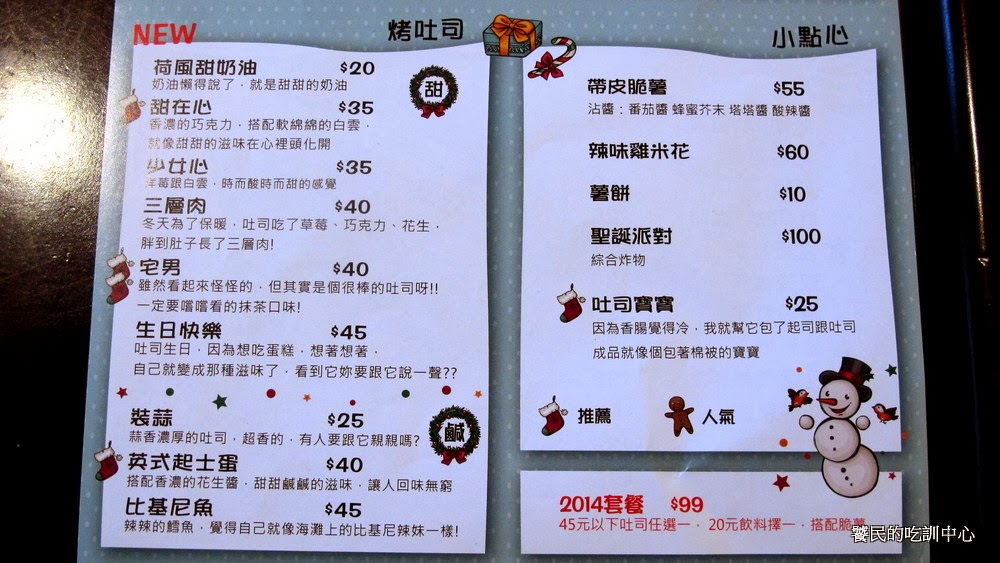 NEW
烤吐司
荷風甜奶油 $20
奶油懶得說了，就是甜甜的奶油
甜
甜在心 $35
香濃的巧克力，搭配軟綿綿的白雲，
就像甜甜的滋味在心裡頭化開
少女心 $35
洋莓跟白雲，時而酸時而甜的感覺
三層肉 $40
冬天為了保暖，吐司吃了草莓、巧克力、花生，
胖到肚子長了三層肉!
宅男 $40
雖然看起來怪怪的，但其實是個很棒的吐司呀!!
一定要嚐嚐看的抹茶口味!
生日快樂 $45
吐司生日，因為想吃蛋糕，想著想著，
自己就變成那種滋味了，看到它妳要跟它說一聲??
裝蒜 $25
蒜香濃厚的吐司，超香的，有人要跟它親親嗎?
鹹
英式起士蛋 $40
搭配香濃的花生醬，甜甜鹹鹹的滋味，讓人回味無窮
比基尼魚 $45
辣辣的鱈魚，覺得自己就像海灘上的比基尼辣妹一樣!
小點心
帶皮脆薯 $55
沾醬：番茄醬 蜂蜜芥末 塔塔醬 酸辣醬
辣味雞米花 $60
薯餅 $10
聖誕派對 $100
綜合炸物
吐司寶寶 $25
因為香腸覺得冷，我就幫它包了起司跟吐司
成品就像個包著棉被的寶寶
推薦 人氣
2014套餐 $99
45元以下吐司任選一，20元飲料擇一，搭配脆薯
饕民的吃訓中心